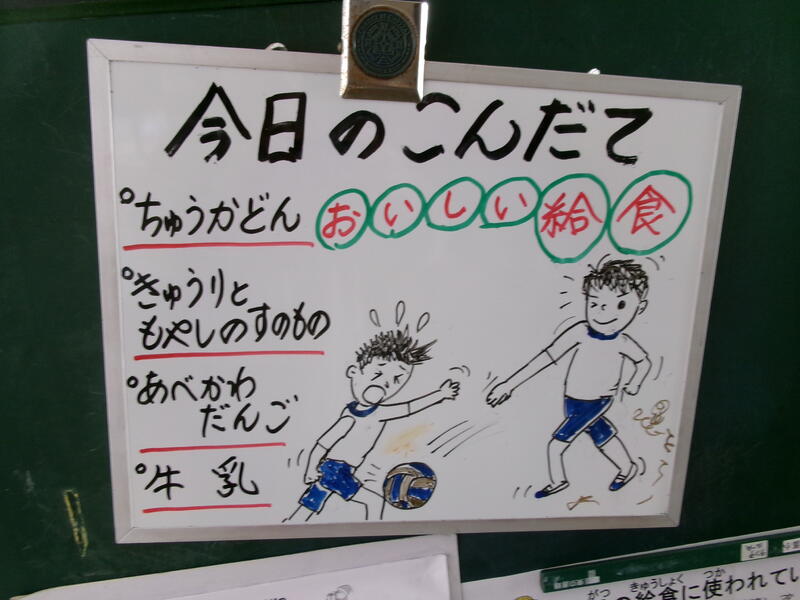 今日のこんだて
おいしい給食
°ちゅうかどん
°きゅうりと
もやしのすのもの
°あべかわ
だんご
°牛乳
がつ きゅうしょく つか
の給食に使われてい